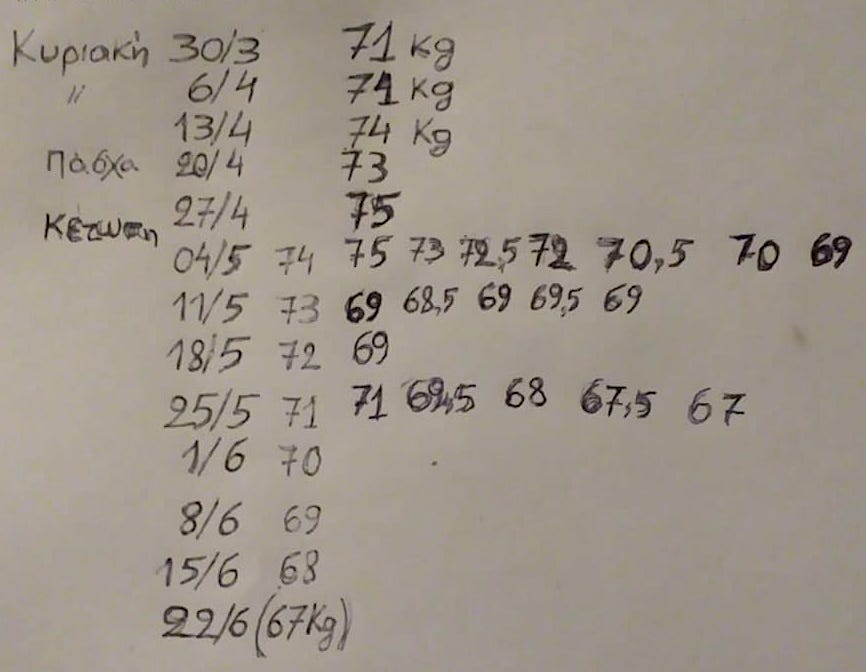 Κυριακή 30/3 71 Kg
" 6/4 71 Kg
13/4 74 Kg
Πάσχα 20/4 73
27/4 75
Κέτωση
04/5 74 75 73 72,5 72 70,5 70 69
11/5 73 69 68,5 69 69,5 69
18/5 72 69
25/5 71 71 69,5 68 67,5 67
1/6 70
8/6 69
15/6 68
22/6 (67Kg)